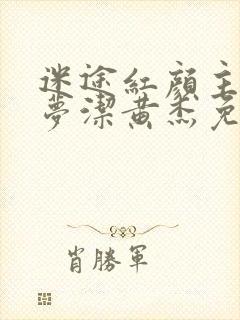 迷途紅顏主
夢潔黃杰免
肖勝軍